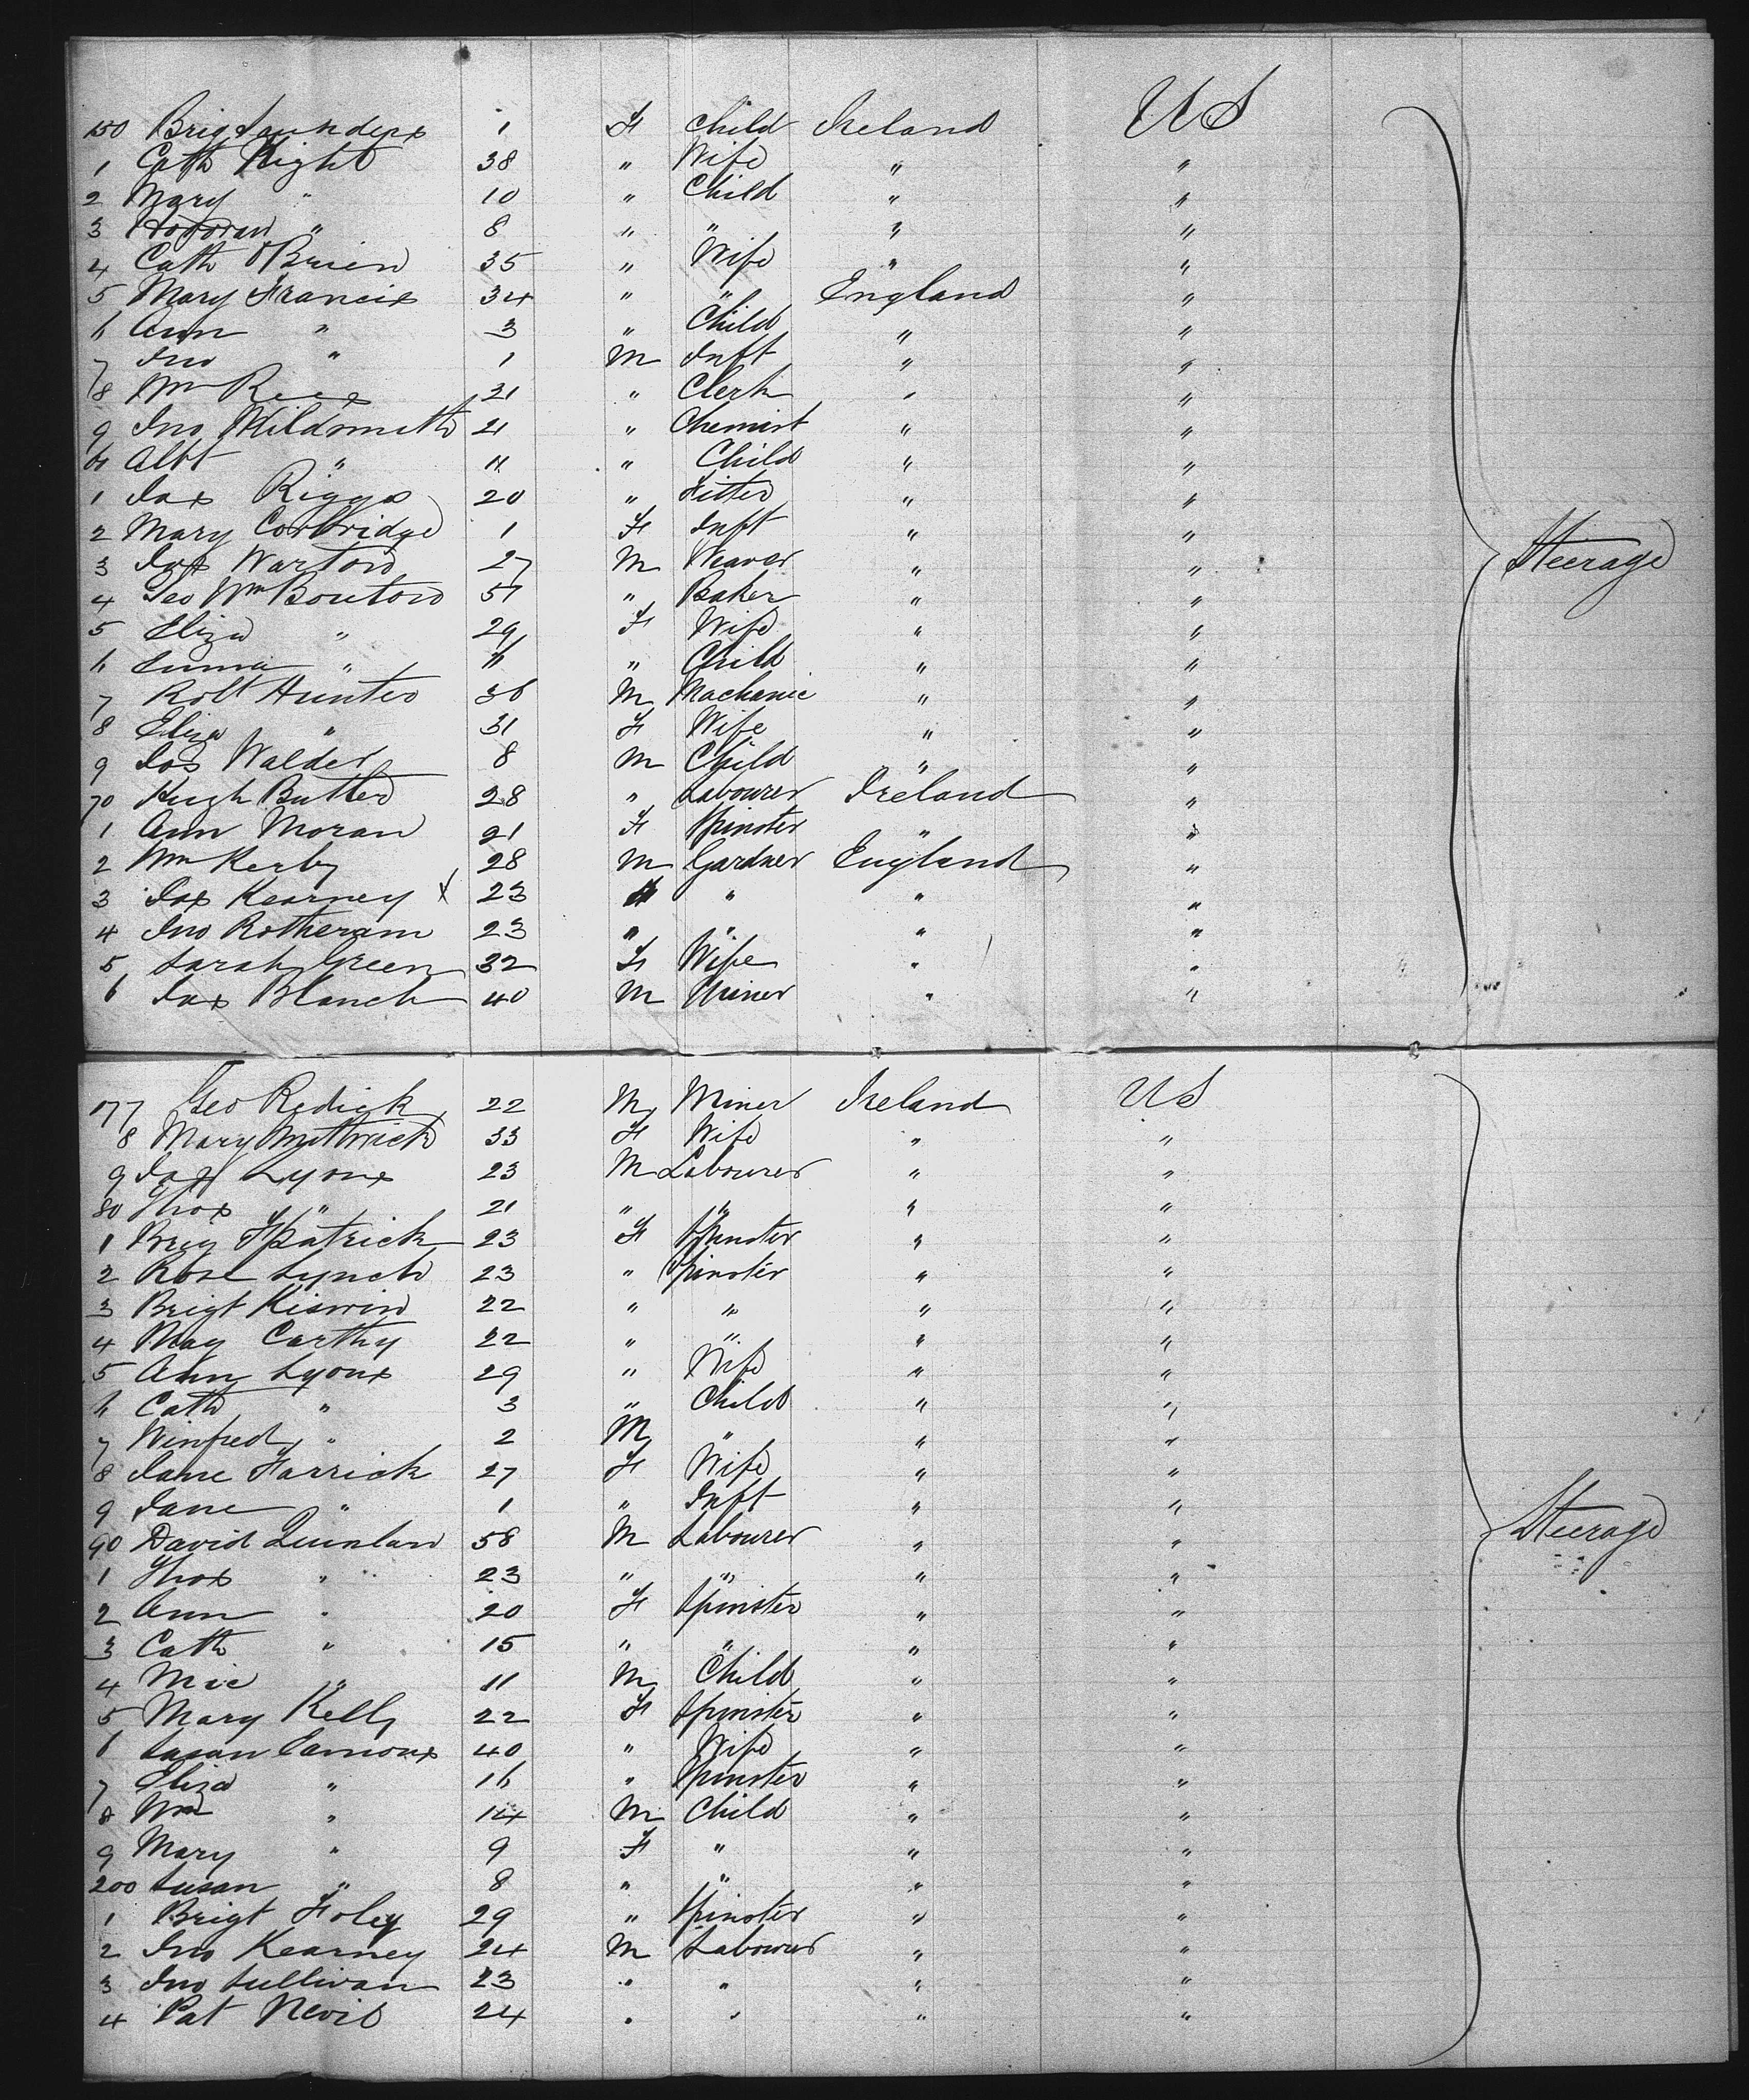 150 Brig Saunders 1 F Child Ireland US
1 Cath Hight 38 " Wife " "
2 Mary " 10 " Child " "
3 " 8 " " " "
4 Cath OBrien 35 " Wife " "
5 Mary Francis 34 " " England "
6 Ann " 3 " Child " "
7 Jno " 1 M Inft " "
8 Wm Rees 21 " Clerk " "
9 Jno Wildsmith 21 " Chemist " "
Albt " 11 " Child " "
1 Jas Riggs 20 " Fitter " "
2 Mary Corbridge 1 F Inft " "
3 Warton 27 M Weaver " " Steerage
4 Geo Wm Bouton 51 " Baker " "
5 Eliza " 29 F Wife " "
6 Emma " 11 " Child " "
7 Robt Hunter 36 M Machanic " "
8 Eliza " 31 F Wife " "
9 Jos Walder 8 M Child " "
70 Hugh Butler 28 " Labourer Ireland "
1 Ann Moran 21 F Spinster " "
2 Wm Kerby 28 M Gardner England "
3 Jas Kearney X 23 " " "
4 Jno Rotheram 23 " " " "
5 Sarah Green 32 F Wife " "
6 Jas Blanch 40 M Miner " "
177 Geo Redick 22 M Miner Ireland US
8 Mary 33 F Wife " "
9 Jas Lyons 23 M Labourer " "
80 Thos " 21 " " " "
1 Breg Ftzpatrick 23 F Spinster " "
2 Rose Lynch 23 " Spinster " "
3 Brigt Kiswin 22 " " " "
4 May Carthy 22 " " " "
5 Ann Lyons 29 " Wife " "
6 Cath " 3 " Child " "
7 Winfred " 2 M " " "
8 Jane Farrick 27 F Wife " "
9 Jane " 1 " Inft " "
90 David Quinlan 58 M Labourer " " Steerage
1 Thos " 23 " " " "
2 Ann " 20 F Spinster " "
3 Cath " 15 " " " "
4 Mic " 11 M Child " "
5 Mary Kelly 22 F Spinster " "
6 Susan Camons 40 " Wife " "
7 Eliza " 16 " Spinster " "
8 Wm " 14 M Child " "
9 Mary " 9 F " " "
200 Susan " 8 " " " "
1 Brigt Foley 29 " Spinster " "
2 Jno Kearney 24 M Labourer " "
3 Jno Sullivan 23 " " " "
4 Pat Nevil 24 " " " "